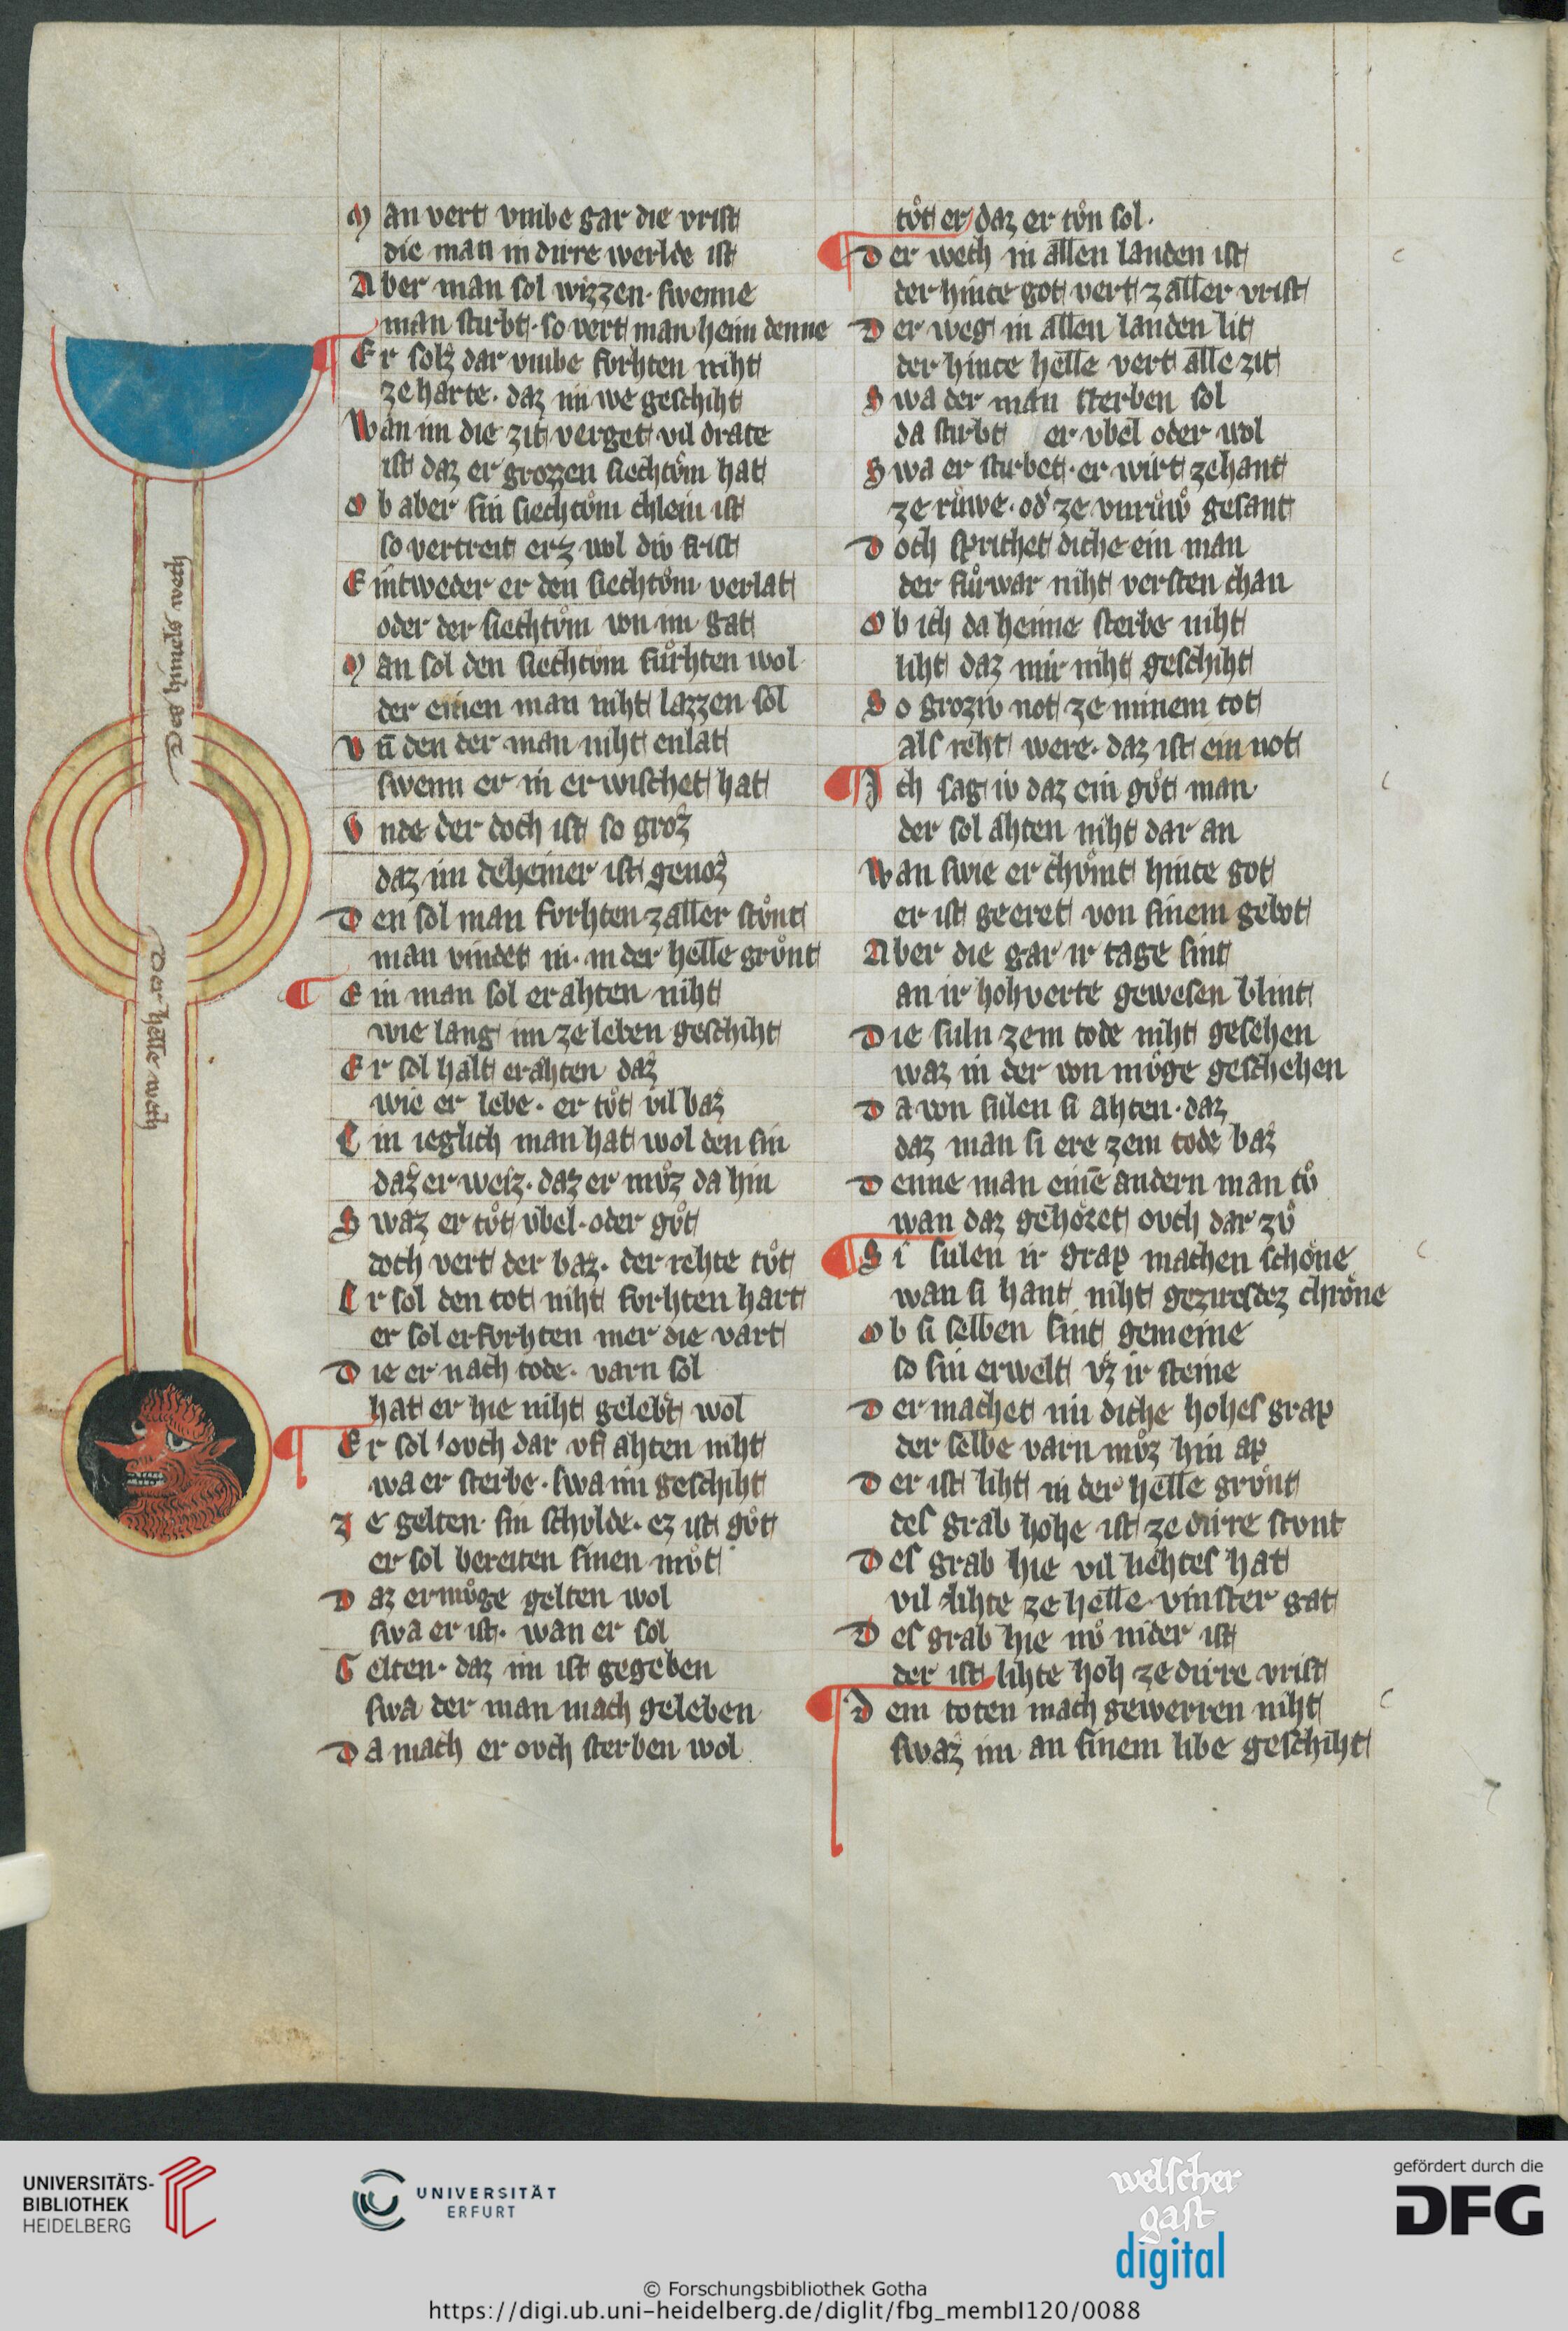 Des himels wech
Der helle wech
Man vert vmbe gar die vrist
die man in dirre werlde ist
Aber man sol wizzen· swenne
man stirbt· so vert man heim denne
Er solz dar vmbe furhten niht
ze harte· daz im we geschiht
Wan im die zit verget vil drate
ist daz er grozzen siechtům hat
Ob aber sin siechtům chlein ist
so vertreit erz wol div frist
Eintweder er den siechtům verlat
oder der siechtům von im gat
Man sol den siechtům fuͤrhten wol
der einen man niht lazzen sol
Vñ den der man niht enlat
swenn er in erwischet hat
Vnde der doch ist so groz
daz im deheiner ist genoz
Den sol man furhten zaller stůnt
man vindet in· in der helle grůnt
Ein man sol er ahten niht
wie lang im ze leben geschiht
Er sol halt erahten daz
wie er lebe· er tůt vil baz
Ein ieglich man hat wol den sin
daz er weiz· daz er můz da hin
Swaz er tůt vbel· oder gůt
doch vert der baz· der rehte tůt
Er sol den tot niht furhten hart
er sol erfurhten mer die vart
Die er nach tode· varn sol
hat er hie niht gelebt wol
Er sol ovch dar vf ahten niht
wa er sterbe· swa im geschiht
Ze gelten· sin schvlde· ez ist gůt
er sol bereiten sinen můt
Daz er můge gelten wol
swa er ist· wan er sol
Gelten· daz im ist gegeben
swa der man mach geleben
Da mach er ovch sterben wol
tůt er daz er tůn sol·
Der wech in allen landen ist
der hince got vert zaller vrist
Der weg in allen landen lit
der hince helle vert alle zit
Swa der man sterben sol
da stirbt er vbel oder wol
Swa er stirbet· er wirt zehant
ze růwe· od ze vnrůw gesant
Doch sprichet diche ein man
der fuͤrwar niht versten chan
Ob ich da heime sterbe niht
liht daz mir niht geschiht
So groziv not ze minem tot
als reht were· daz ist ein not
Ich sag iv daz ein gůt man
der sol ahten niht dar an
Wan swie er chůmt hince got
er ist geeret von sinem gebot
Aber die gar ir tage sint
an ir hohverte gewesen blint
Die suln zem tode niht gesehen
waz in der von můge geschehen
Da von sulen si ahten· daz
daz man si ere zem tode baz
Denne man einē andern man tů
wan daz gehoͤret ovch dar zů
Si sulen ir grap machen schoͤne
wan si hant niht gezirdez chroͤne
Ob si selben sint gemeine
so sin erwelt vz ir steine
Der machet im diche hohes grap
der selbe varn můz hin ap
Der ist liht in der helle grůnt
des grab hohe ist ze dirre stvnt
Des grab hie vil liehtes hat
vil lihte ze helle vinster gat
Des grab hie nů nider ist
der ist lihte hoh ze dirre vrist
Dem toten mach gewerren niht
swaz im an sinem libe geschiht
UNIVERSITÄTS-
BIBLIOTHEK
HEIDELBERG
UNIVERSITÄT
ERFURT
welscher
gast
digital
gefördert durch die
DFG
© Forschungsbibliothek Gotha
https://digi.ub.uni-heidelberg.de/diglit/fbg_membI120/0088